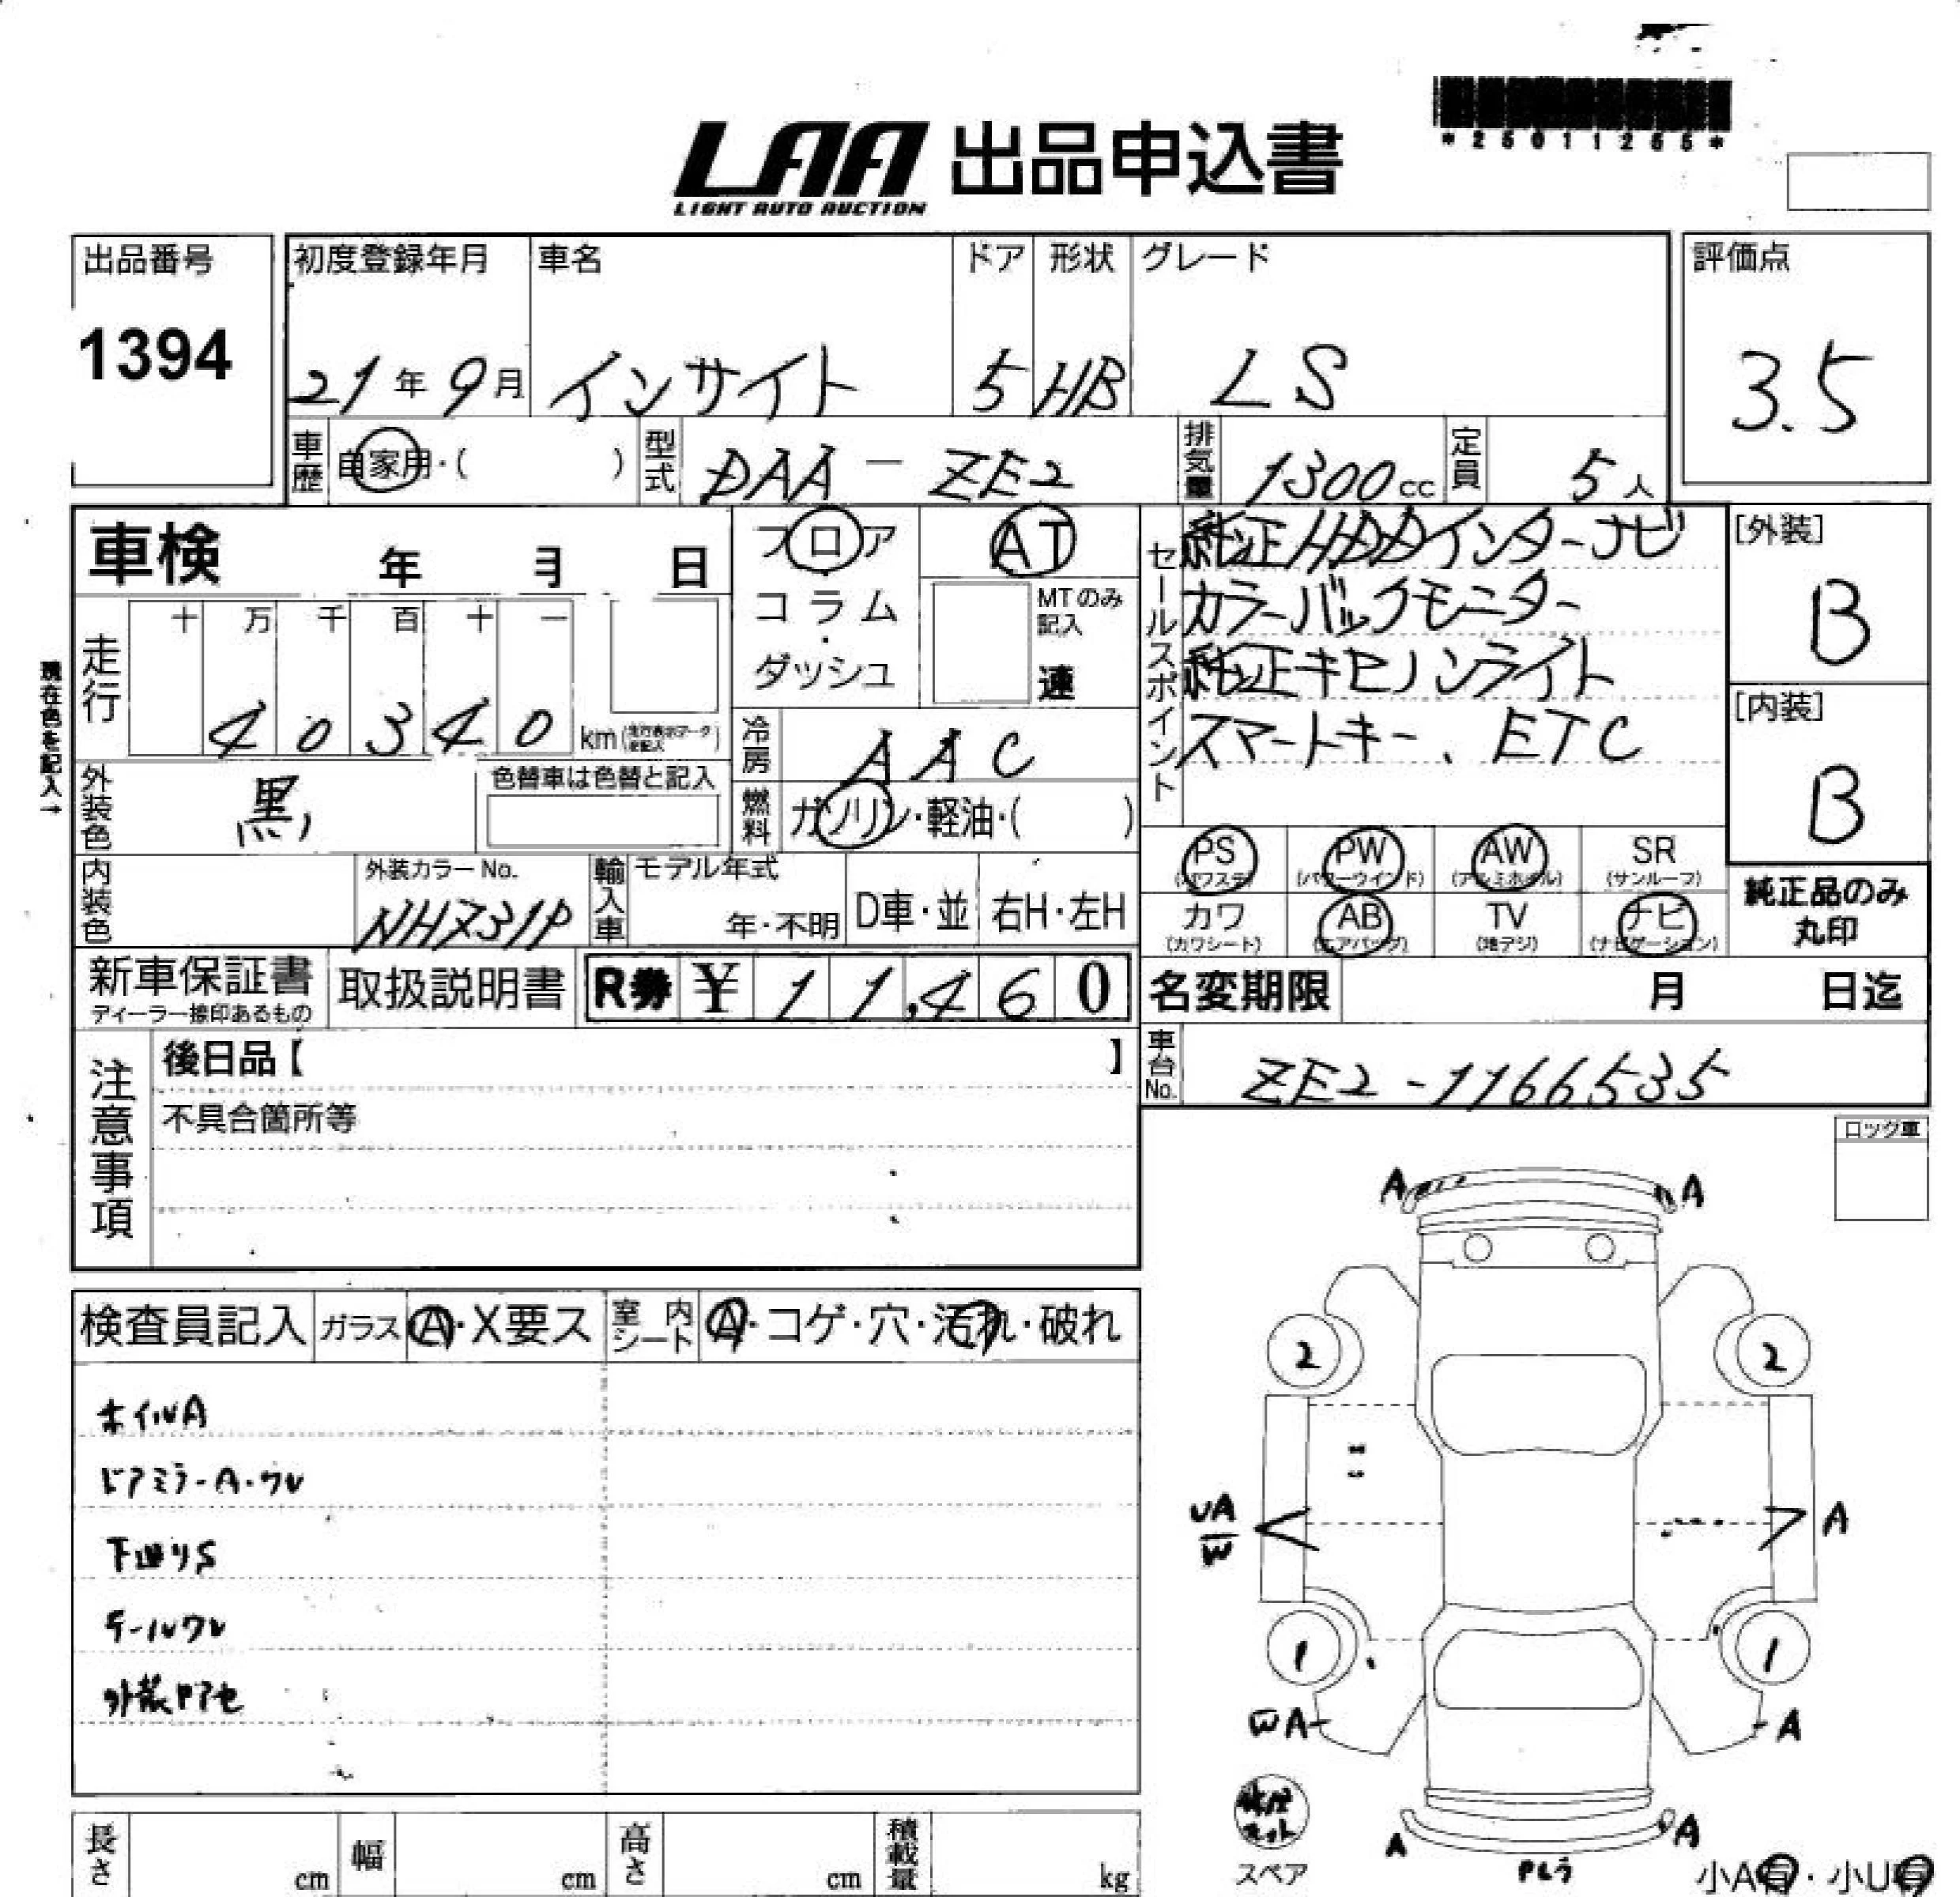 *25011265*
LAA 出品申込書
LIGHT AUTO AUCTION
出品番号
1394
初度登録年月
21年9月
車名
インサイト
ドア
5
形状
HB
グレード
LS
評価点
3.5
車歴 自家用・( )
型式 DAA－ZE2
排気量 1300cc
定員 5人
車検 年 月 日
フロア
・
コラム
・
ダッシュ
AT
MTのみ
記入
速
走行
十 万 千 百 十 一
40340 km
現在色を記入→
セールスポイント
純正HDDインターナビ
カラーバックモニター
純正キセノンライト
スマートキー、ETC
[外装]
B
[内装]
B
冷房 AAC
燃料 ガソリン・軽油・( )
外装色 黒
色替車は色替と記入
内装色
外装カラーNo.
NH731P
輸入車
モデル年式
年・不明
D車・並
右H・左H
PS
(パワステ)
PW
(パワーウインド)
AW
(アルミホイル)
SR
(サンルーフ)
カワ
(カワシート)
AB
(エアバッグ)
TV
(地デジ)
ナビ
(ナビゲーション)
純正品のみ
丸印
新車保証書
ディーラー捺印あるもの
取扱説明書
R券 ¥ 11,460
名変期限 月 日迄
車台No. ZE2-1166535
注意事項
後日品【 】
不具合箇所等
ロック車
検査員記入
ガラス A・X要ス
室内シート A・コゲ・穴・汚れ・破れ
ホイルA
ドアミラーA・ワレ
下廻りS
テールワレ
外装ドアセ
A A
2 2
UA
W
A
1 1
WA
A
A A
スペア
小A有・小U有
長さ cm
幅 cm
高さ cm
積載量 kg